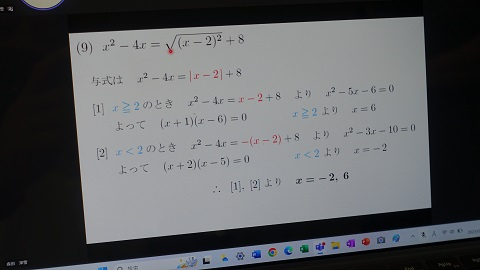 (9) x² − 4x = √(x − 2)² + 8
与式は x² − 4x = |x − 2| + 8
[1] x ≧ 2 のとき x² − 4x = x − 2 + 8 より x² − 5x − 6 = 0
よって (x + 1)(x − 6) = 0 x ≧ 2 より x = 6
[2] x < 2 のとき x² − 4x = −(x − 2) + 8 より x² − 3x − 10 = 0
よって (x + 2)(x − 5) = 0 x < 2 より x = −2
∴ [1], [2] より x = −2, 6